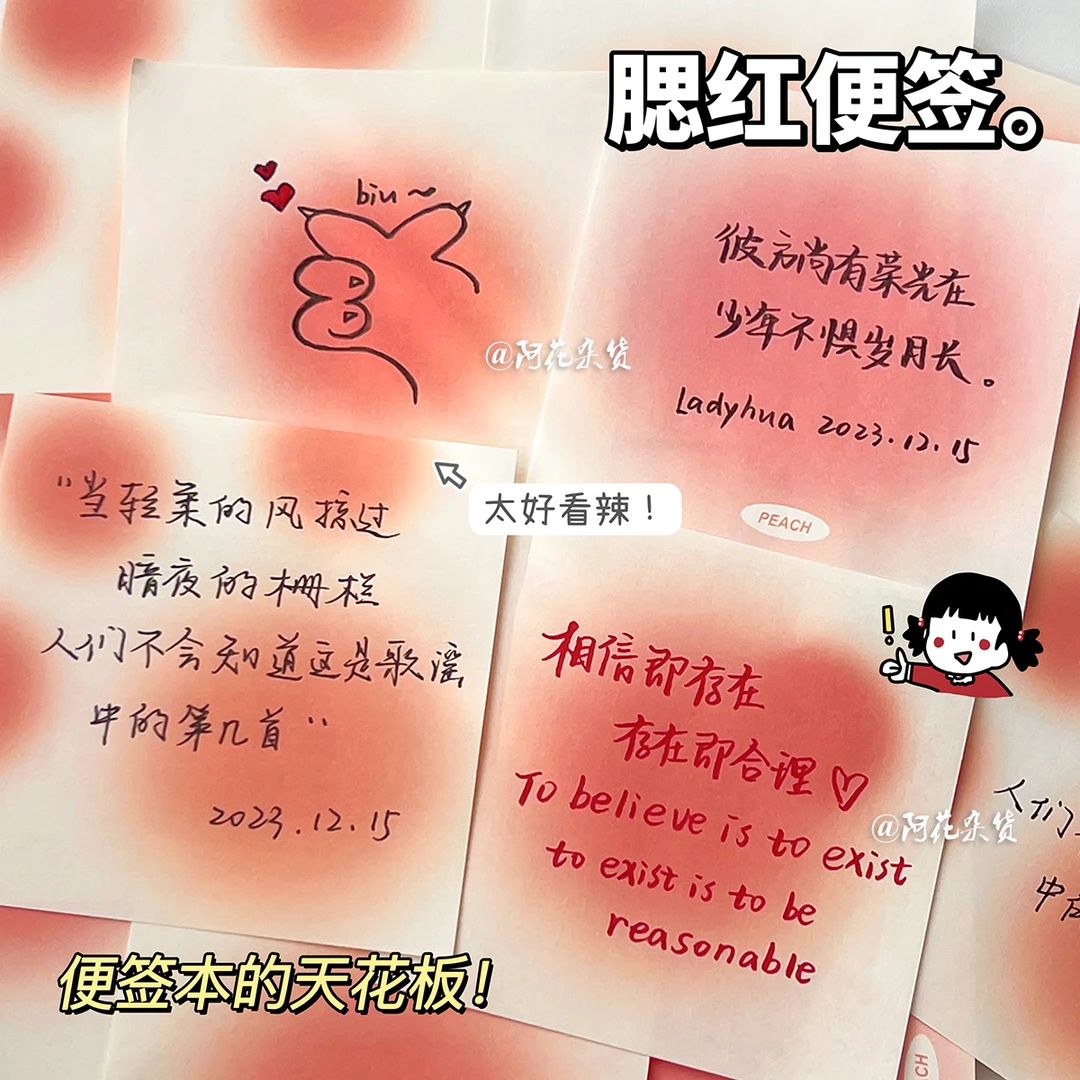 腮红便签。
biu~
@阿花杂货
彼方尚有荣光在
少年不惧岁月长。
Ladyhua 2023.12.15
PEACH
"当轻柔的风掠过
暗夜的栅栏
人们不会知道这是歌谣
中的第几首"
2023.12.15
太好看辣!
相信即存在
存在即合理
To believe is to exist
to exist is to be
reasonable
@阿花杂货
人们
中
便签本的天花板!
CH